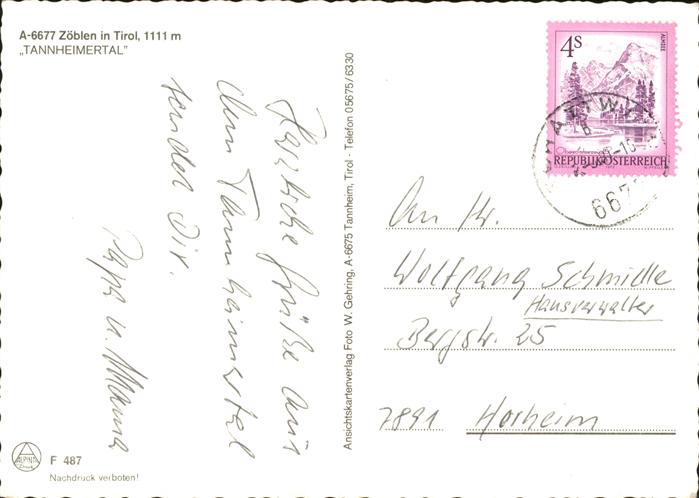 A-6677 Zöblen in Tirol, 1111 m
„TANNHEIMERTAL"
Herzliche Grüße aus
dem Tannheimertal
senden Dir.
Papa u. Mama
ALPINA
Druck
F 487
Nachdruck verboten!
Ansichtskartenverlag Foto W. Gehring, A-6675 Tannheim, Tirol - Telefon 05675/6330
4s
ALMSEE
REPUBLIK ÖSTERREICH
An Hr.
Wolfgang Schmidle
Hausverwalter
Bergstr. 25
7891 Horheim